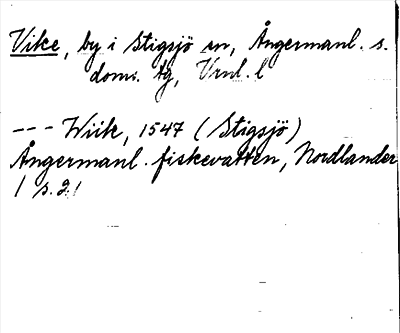 Vike, by i Stigsjö sn, Ångermanl. s.
doms. tg, Vrnl. l
--- Wiik, 1547 (Stigsjö)
Ångermanl. fiskevatten, Nordlander
1 s. 21